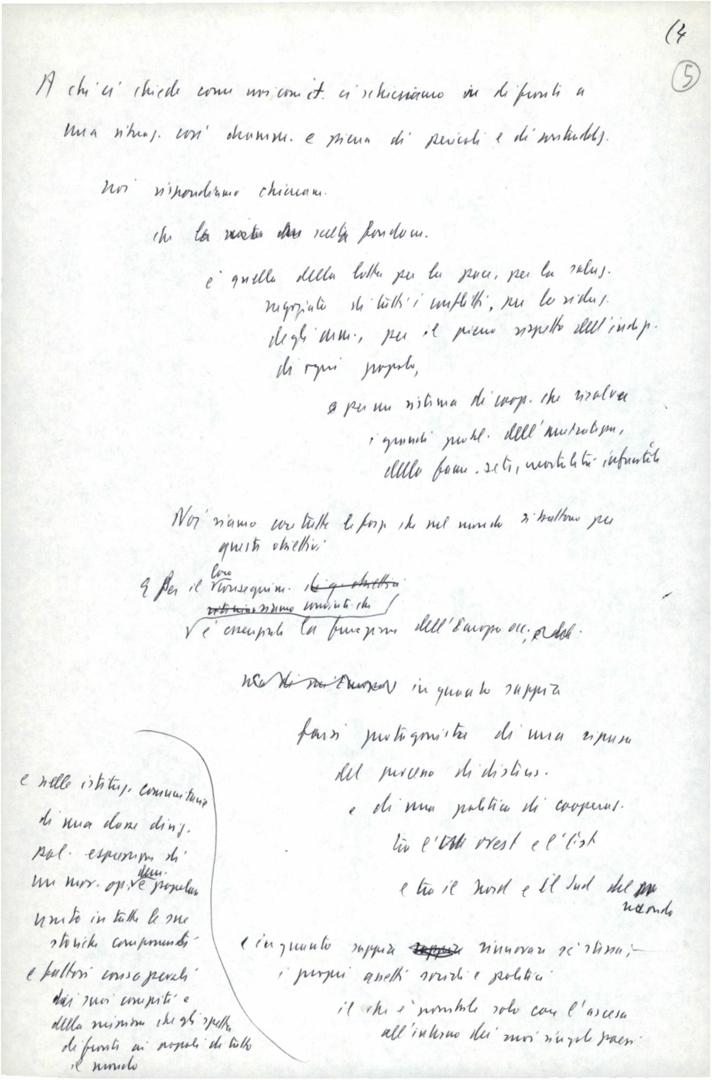 (4
5
A chi ci chiede come noi com.st. ci schieriamo in di fronte a
una situaz. così dramm. e piena di pericoli e di
noi rispondiamo chiaram.
che la scelta fondam.
è quella della lotta per la pace, per la soluz.
negoziata di tutti i conflitti, per la riduz.
degli arm., per il pieno rispetto dell'indip.
di ogni popolo,
e per un sistema di coop. che risolva
i grandi probl. dell'
della fame, sete, mortalità infantile
Noi siamo con tutte le forze che nel mondo si battono per
questi obiettivi
loro
e Per il conseguim. di q. obiettivi
siamo convinti che
è essenziale la funzione dell'Europa occ.
in quanto sappia
farsi protagonista di una ripresa
del processo di distens.
e di una politica di cooperaz.
tra l'ovest e l'est
e tra il Nord e il Sud del
mondo
e in quanto sappia sappia rinnovare se stessa,
i propri assetti sociali e politici
il che è possibile solo con l'ascesa
all'interno dei suoi singoli paesi
e nelle istituz. comunitarie
di una classe dirig.
pol. espressione di
dem.
un mov. op. e popolare
unito in tutte le sue
storiche componenti
e fattosi consapevole
dei suoi compiti e
della missione che gli spetta
di fronte ai popoli di tutto
il mondo